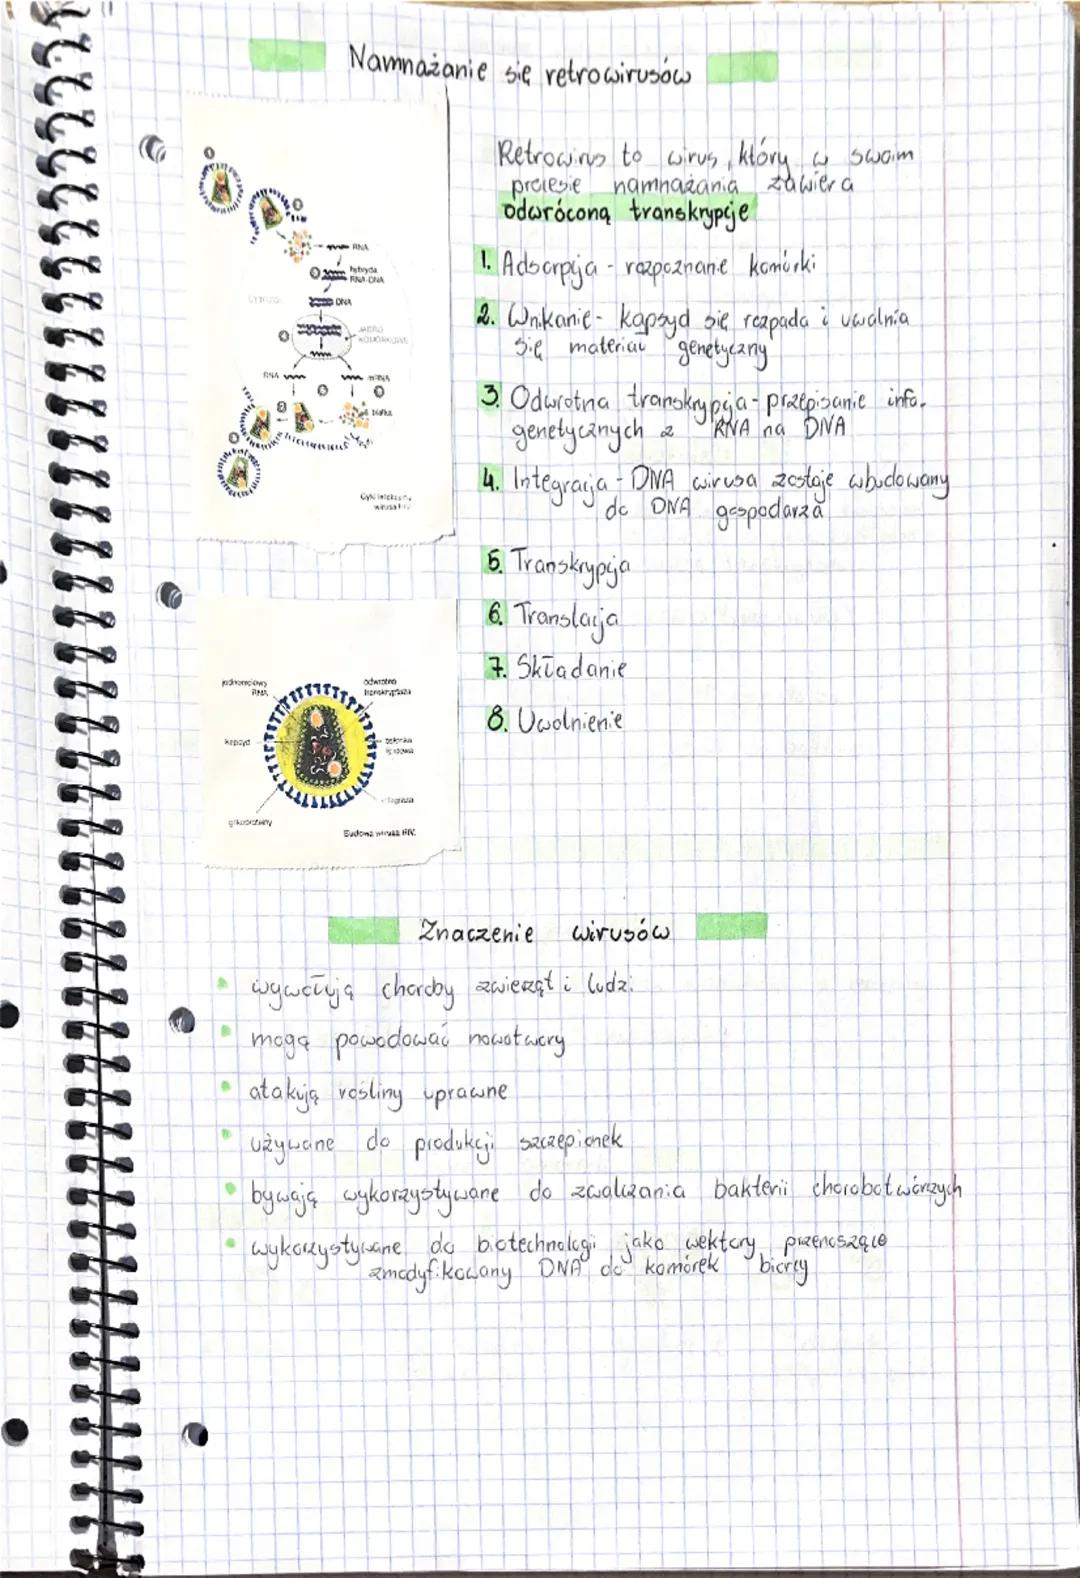 Namnażanie się retrowirusów
Retrowirus to wirus, który w swoim
procesie namnażania zawiera
odwróconą transkrypcje
1. Adsorpcja - rozpoznanie komórki
2. Wnikanie - kapsyd się rozpada i uwalnia
się materiał genetyczny
3. Odwrotna transkrypcja - przepisanie info.
genetycznych z RNA na DNA
4. Integracja - DNA wirusa zostaje wbudowany
do DNA gospodarza
5. Transkrypcja
6. Translacja
7. Składanie
8. Uwolnienie
RNA
hybryda
RNA-DNA
DNA
JĄDRO
KOMÓRKOWE
RNA
mRNA
białka
jednoniciowy
RNA
odwrotna
transkryptaza
kapsyd
glikoproteiny
Budowa wirusa HIV.
Znaczenie wirusów
wywołują choroby zwierząt i ludzi
mogą powodować nowotwory
atakują rośliny uprawne
używane do produkcji szczepionek
bywają wykorzystywane do zwalczania bakterii chorobotwórczych
wykorzystywane do biotechnologii jako wektory przenoszące
zmodyfikowany DNA do komórek biorcy